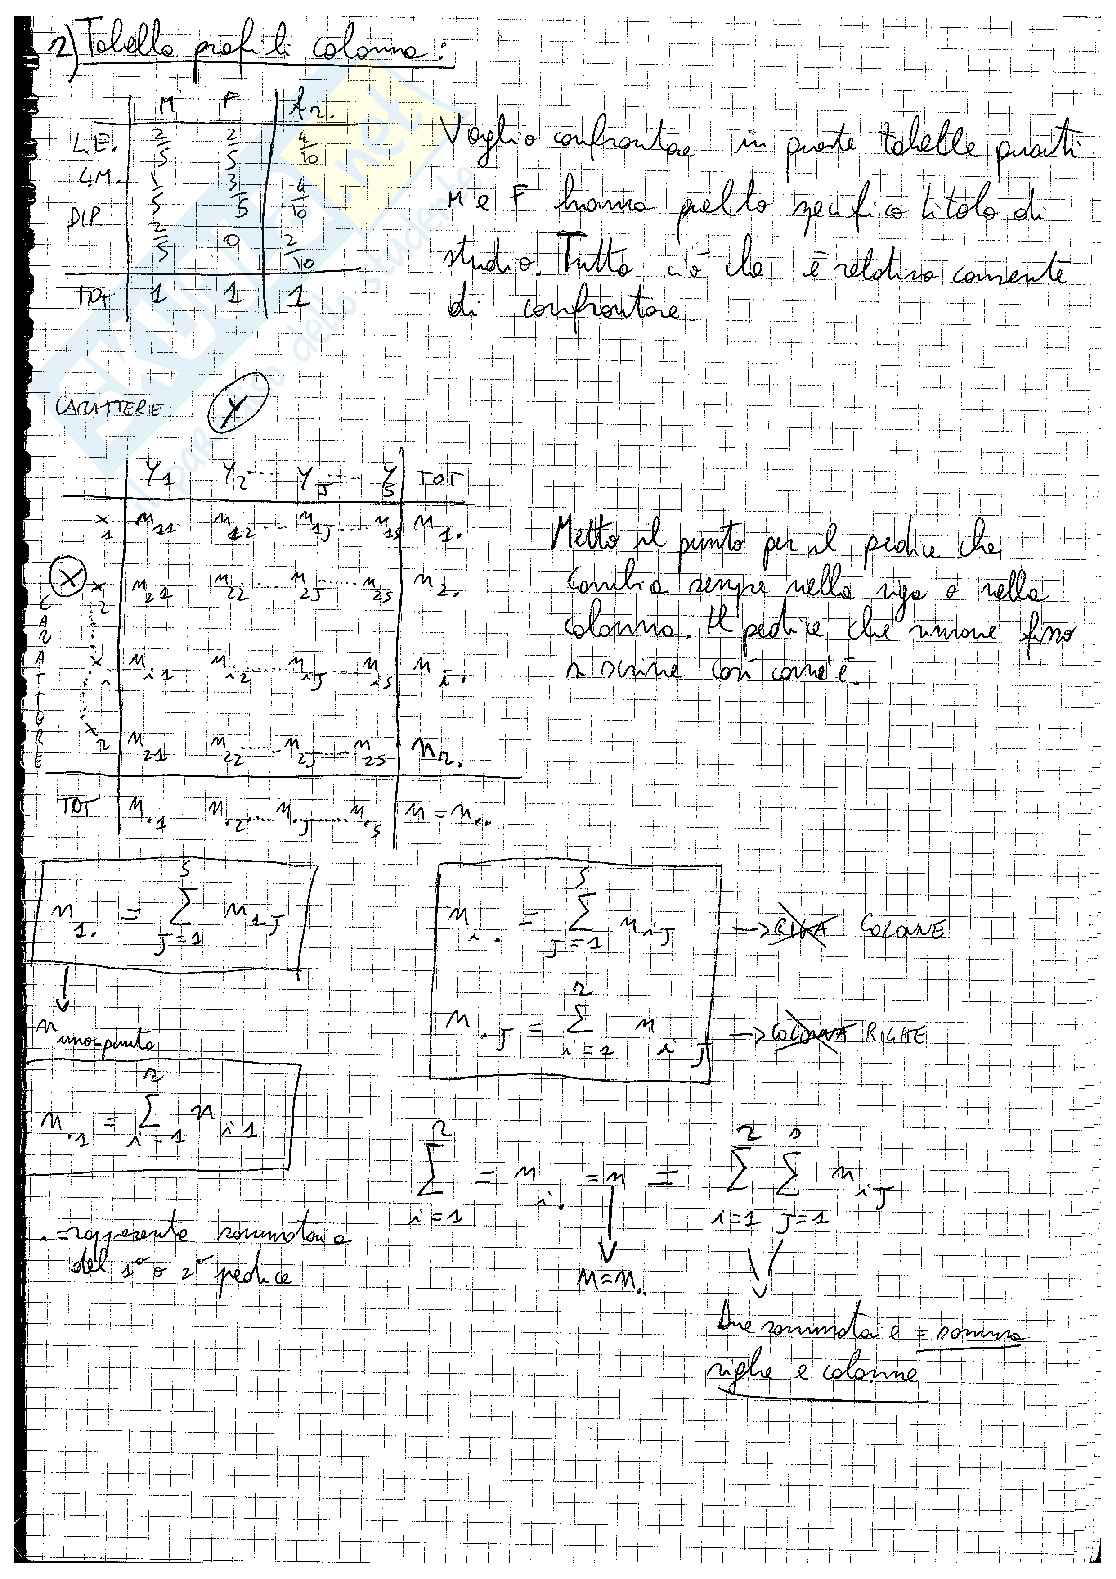 2) Tabella profili colonna:
M F Am.
L.E. 2/5 2/5 4/10
L.M. 1/5 3/5 4/10
DIP 2/5 0 2/10
TOT 1 1 1
Voglio confrontare in queste tabelle quanti
M e F hanno quello specifico titolo di
studio. Tutto ciò che è relativo consente
di confrontare
CARATTERE Y
Y1 Y2 ... YJ ... YS TOT
x1 n11 n12 ... n1J n1s n1.
X x2 n21 n22 ... n2J ... n2s n2.
CARATTORE
xi ni1 ni2 ... niJ nis ni.
xr nr1 nr2 nrJ nrs nr.
TOT n.1 n.2 ... n.J ... n.s n = n..
Metto il punto per il pedice che
cambia sempre nella riga o nella
colonna. Il pedice che rimane fisso
si scrive così com'è.
n1. = Σ s J=1 n1J
n uno-punto
n.1 = Σ r i=1 ni1
ni. = Σ s J=1 niJ → RIGA COLONNE
n.J = Σ r i=1 niJ → COLONNA RIGHE
Σ r i=1 = ni. = n = Σ r i=1 Σ s J=1 niJ
n = n..
. = rappresenta sommatoria
del 1° o 2° pedice
Due sommatorie = somma
righe e colonne